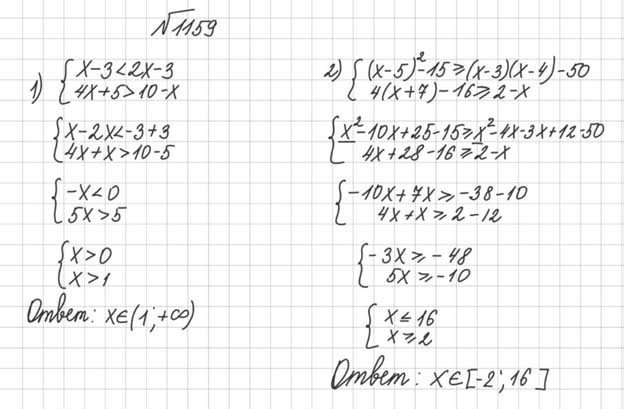 №1159
1) { x-3<2x-3
4x+5>10-x
{ x-2x<-3+3
4x+x>10-5
{ -x<0
5x>5
{ x>0
x>1
Ответ: x∈(1;+∞)
2) { (x-5)²-15≥(x-3)(x-4)-50
4(x+7)-16≥2-x
{ x²-10x+25-15≥x²-4x-3x+12-50
4x+28-16≥2-x
{ -10x+7x≥-38-10
4x+x≥2-12
{ -3x≥-48
5x≥-10
{ x≤16
x≥2
Ответ: x∈[-2;16]